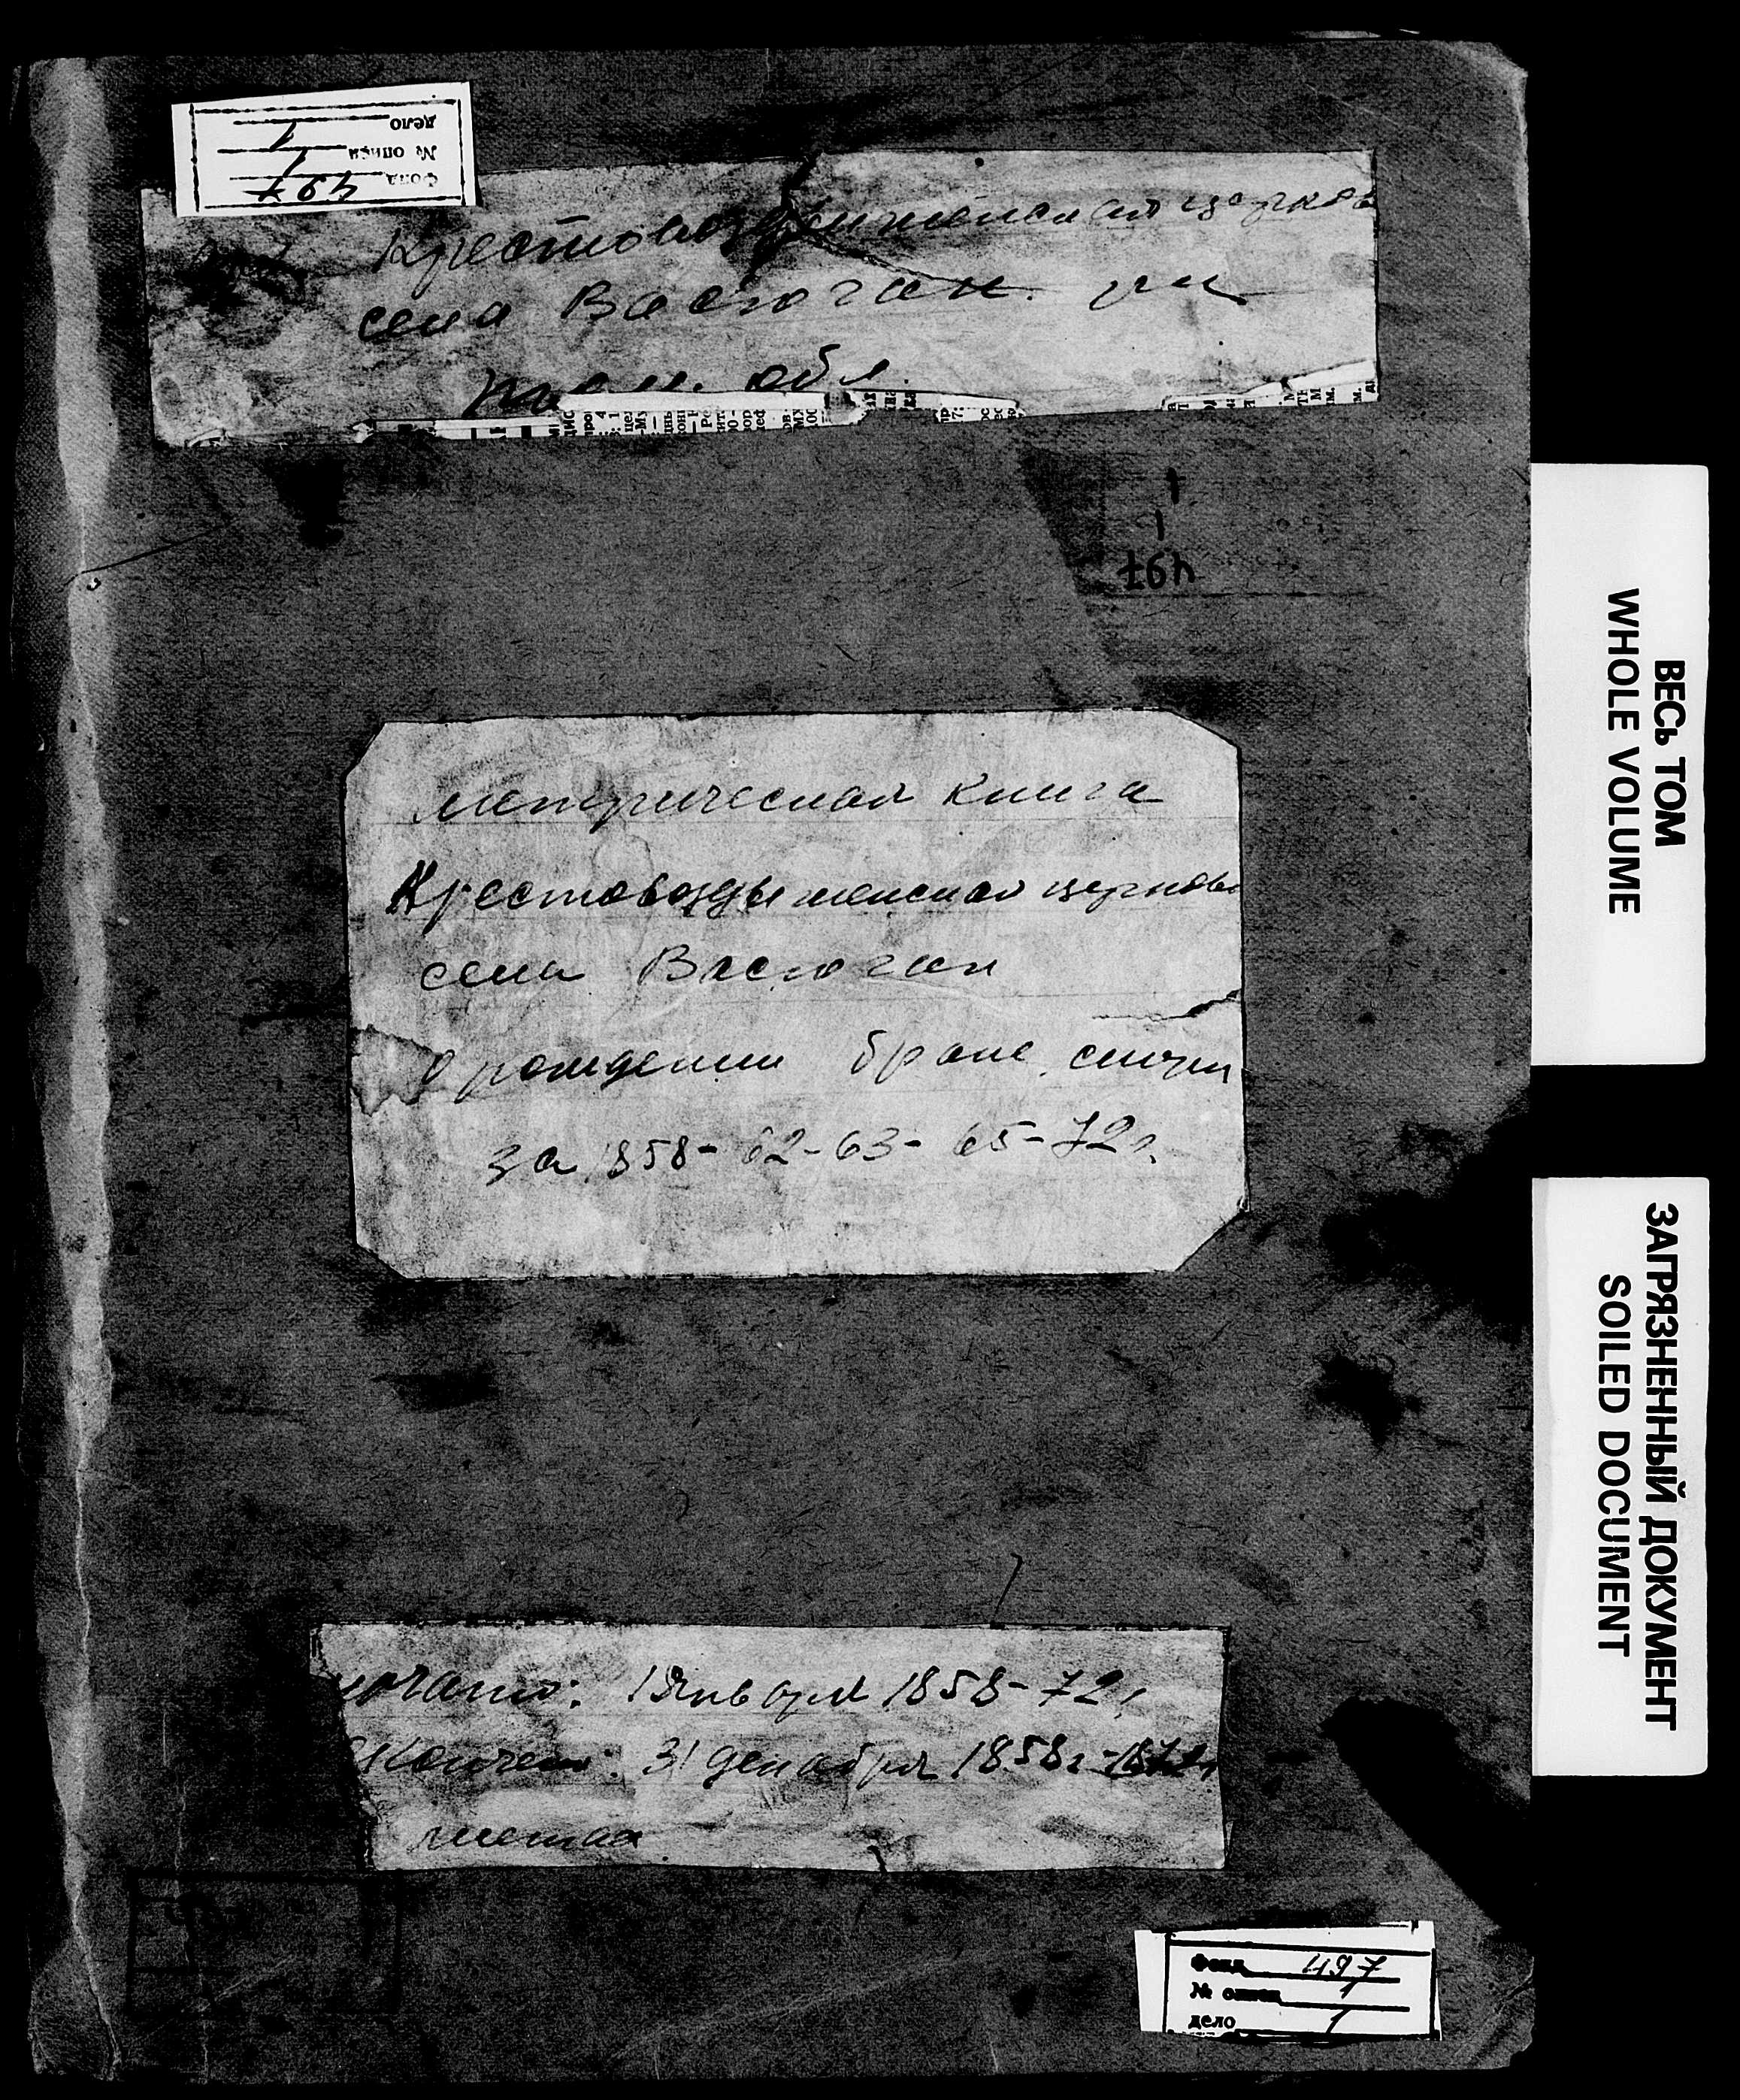 Фонд 497
№ описи 1
дело 1
Крестовоздвиженская церковь
села Васюган
Том. обл.
1
1
497
Метрическая книга
Крестовоздвиженская церковь
села Васюган
о рождении браке смерти
за 1858-62-63-65-72 г.
начато: 1 января 1858-72 г.
окончено: 31 декабря 1858 г.-1872 г.
Фонд 497
№ описи 1
дело 1
ВЕСЬ ТОМ
WHOLE VOLUME
ЗАГРЯЗНЕННЫЙ ДОКУМЕНТ
SOILED DOCUMENT